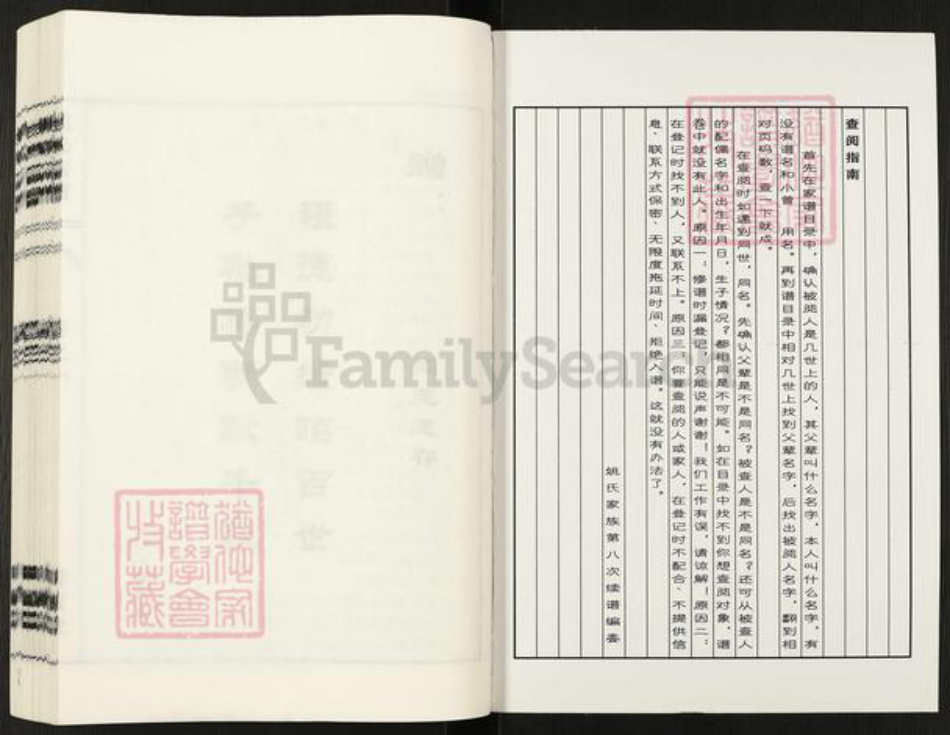 查阅指南
首先在家谱目录中，确认被阅人是几世上的人，其父辈叫什么名字，本人叫什么名字，有
没有谱名和小曾 用名。再到谱目录中相对几世上找到父辈名字，后找出被阅人名字，翻到相
对页码数，查一下就成。
在查阅时如遇到同世，同名。先确认父辈是不是同名？被查人是不是同名？还可从被查人
的配偶名字和出生年月日，生子情况？都相同是不可能。如在目录中找不到你想查阅对象，谱
卷中就没有此人。原因一：修谱时漏登记，只能说声谢谢！我们工作有误，请谅解！原因二：
在登记时找不到人，又联系不上。原因三：你要查阅的人或家人，在登记时不配合、不提供信
息、联系方式保密、无限度拖延时间、拒绝入谱。这就没有办法了。
姚氏家族第八次续谱编委
FamilySearch
猶他家
譜學會
收藏